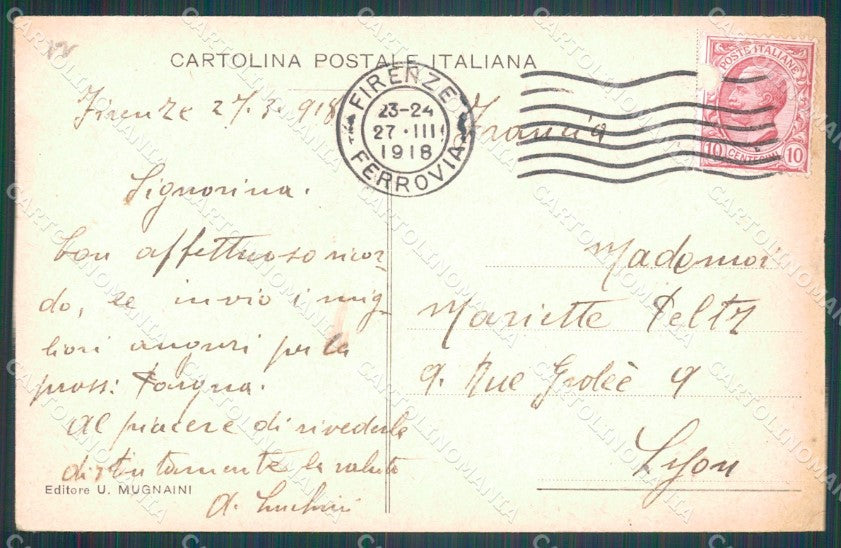 CARTOLINA POSTALE ITALIANA
Firenze 27.3.918
Signorina.
Con affettuoso ricor-
do, le invio i mig-
liori auguri per la
pross: Pasqua.
Al piacere di rivederla
distintamente la saluta
A.
Editore U. MUGNAINI
FIRENZE
23-24
27·III
1918
FERROVIA
POSTE ITALIANE
10 CENTESIMI 10
Francia
Mademoi
Mariette Peltz
9. Rue Grolée 9
Lyon
CARTOLINOMANIA